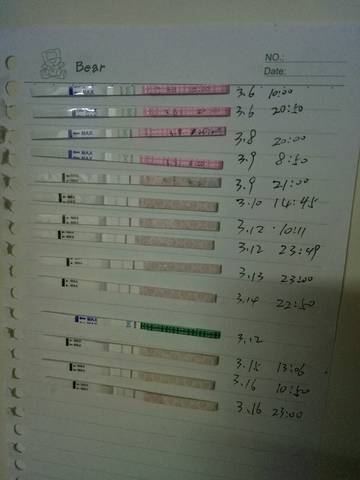 Bear
NO.:
Date:
3.6 10:00
3.6 20:50
3.8 20:00
3.9 8:50
3.9 21:00
3.10 14:45
3.12 10:11
3.12 23:49
3.13 23:00
3.14 22:50
3.12
3.15 13:06
3.16 10:50
3.16 23:00